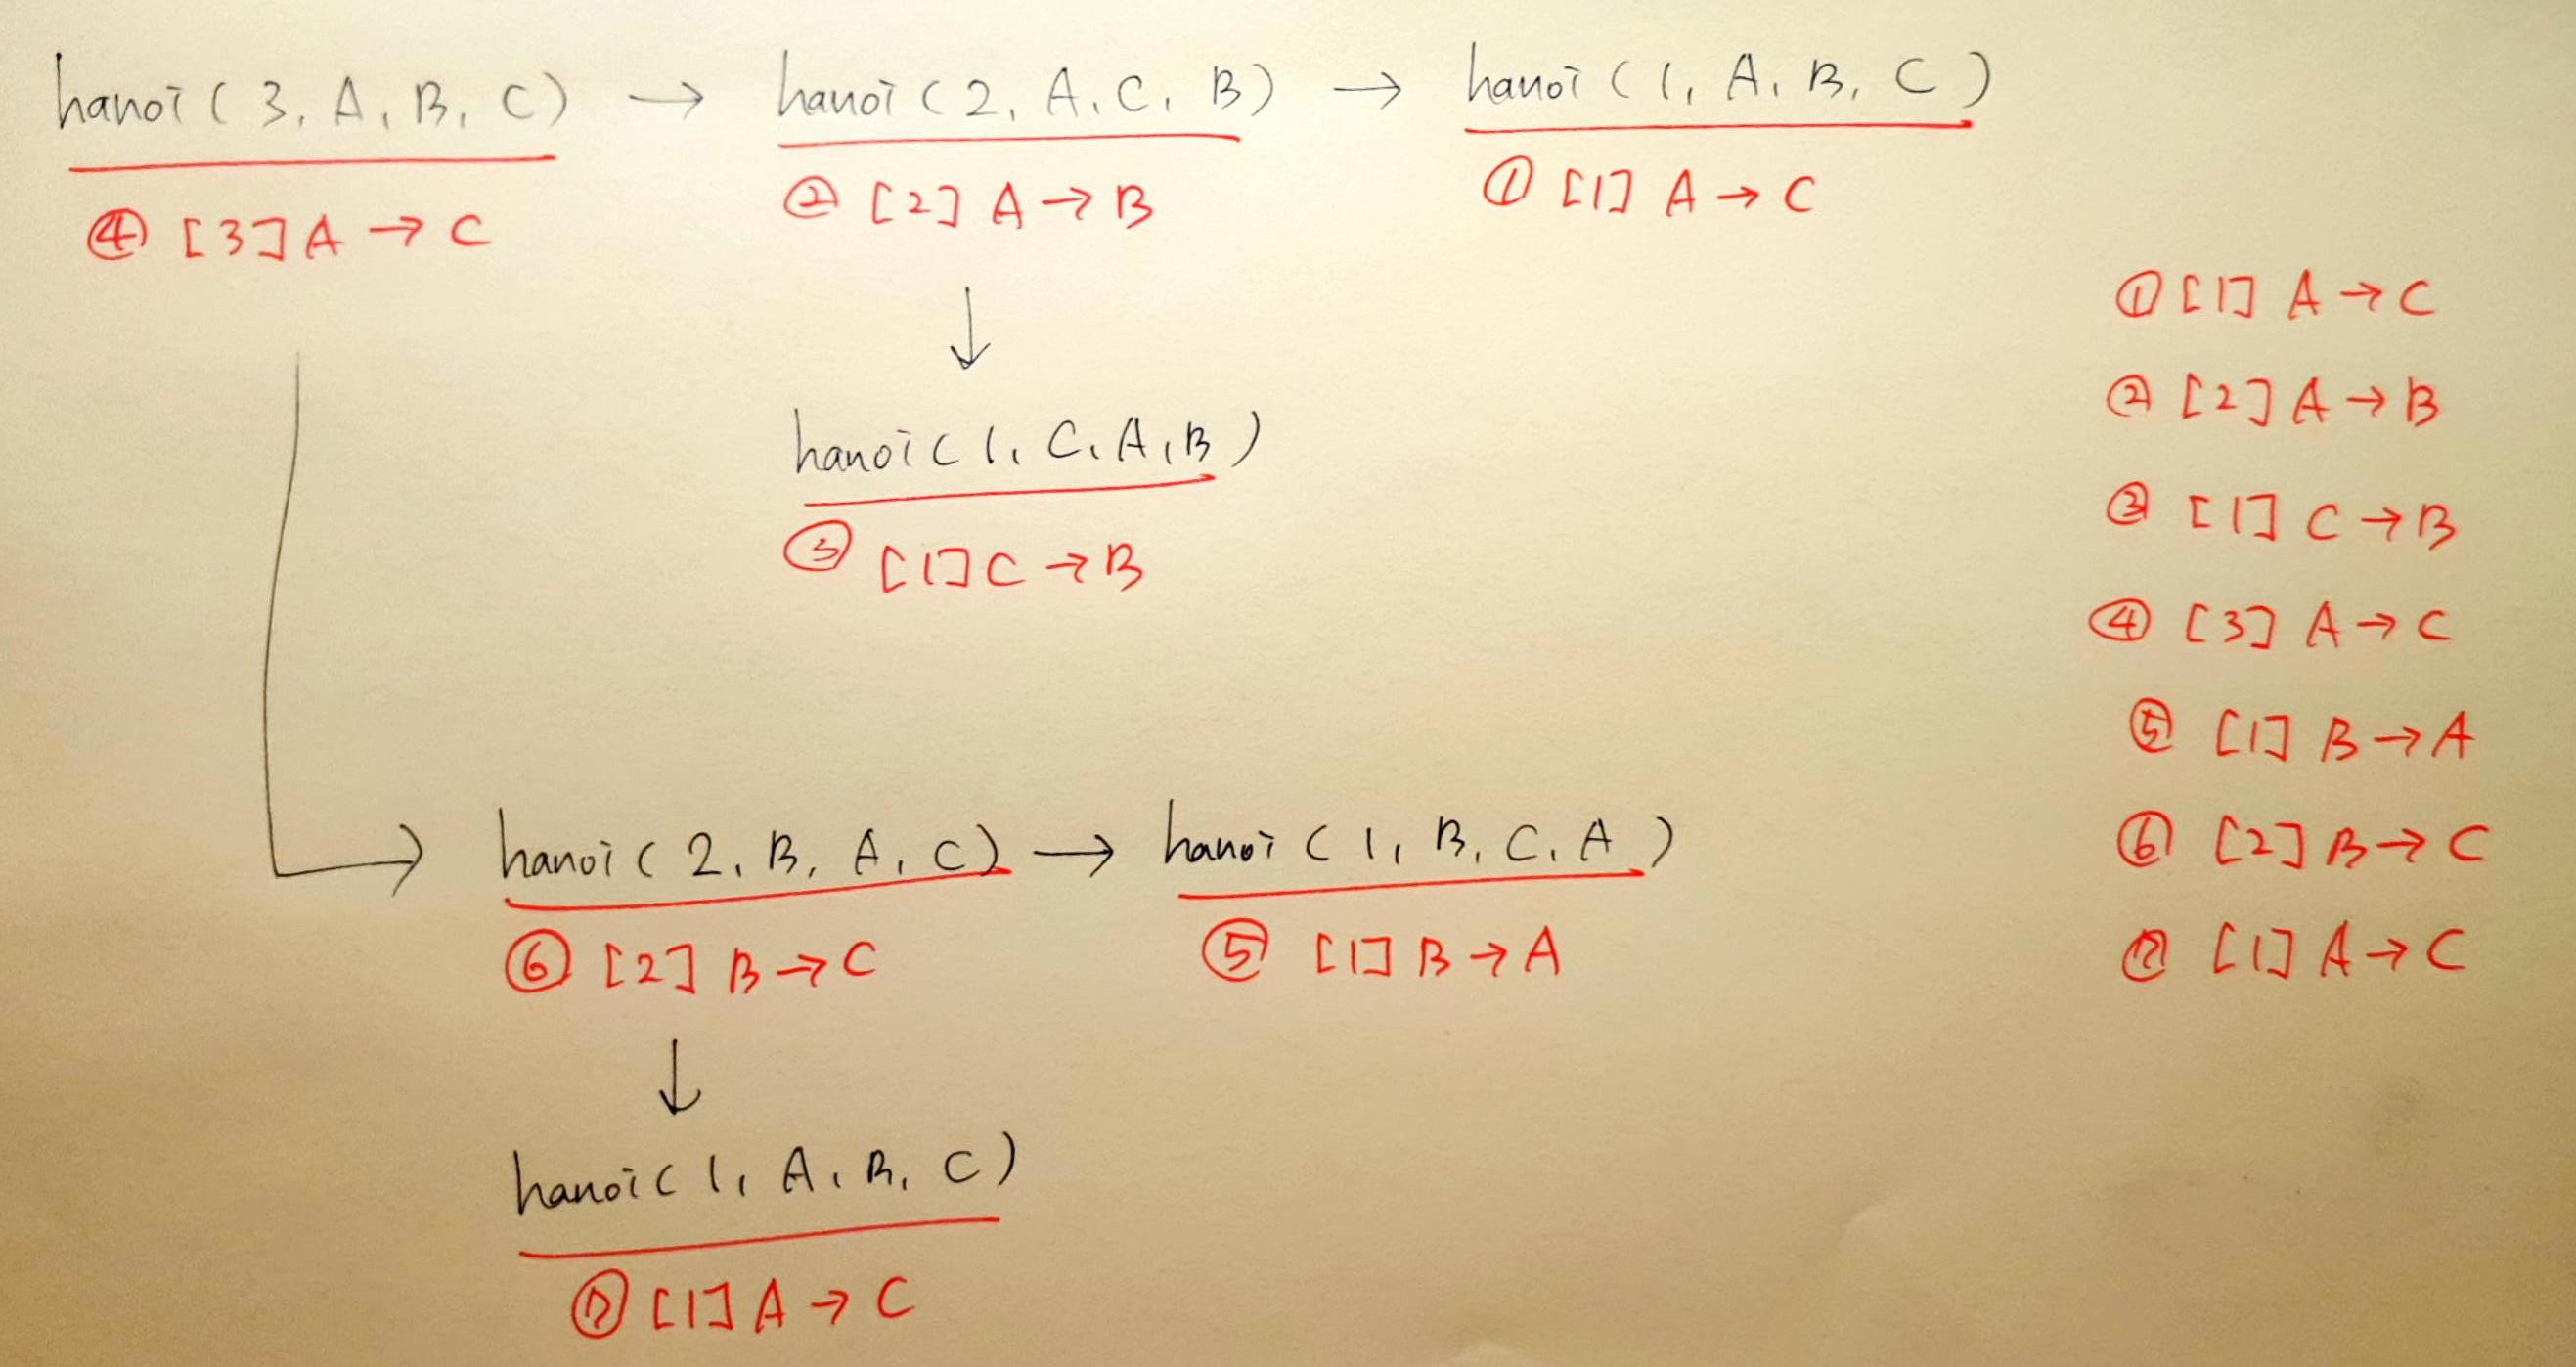 hanoi ( 3, A, B, C ) → hanoi ( 2, A, C, B ) → hanoi ( 1, A, B, C )
④ [3] A → C
② [2] A → B
① [1] A → C
↓
hanoi ( 1, C, A, B )
③ [1] C → B
→ hanoi ( 2, B, A, C ) → hanoi ( 1, B, C, A )
⑥ [2] B → C
⑤ [1] B → A
↓
hanoi ( 1, A, B, C )
⑦ [1] A → C
① [1] A → C
② [2] A → B
③ [1] C → B
④ [3] A → C
⑤ [1] B → A
⑥ [2] B → C
⑦ [1] A → C